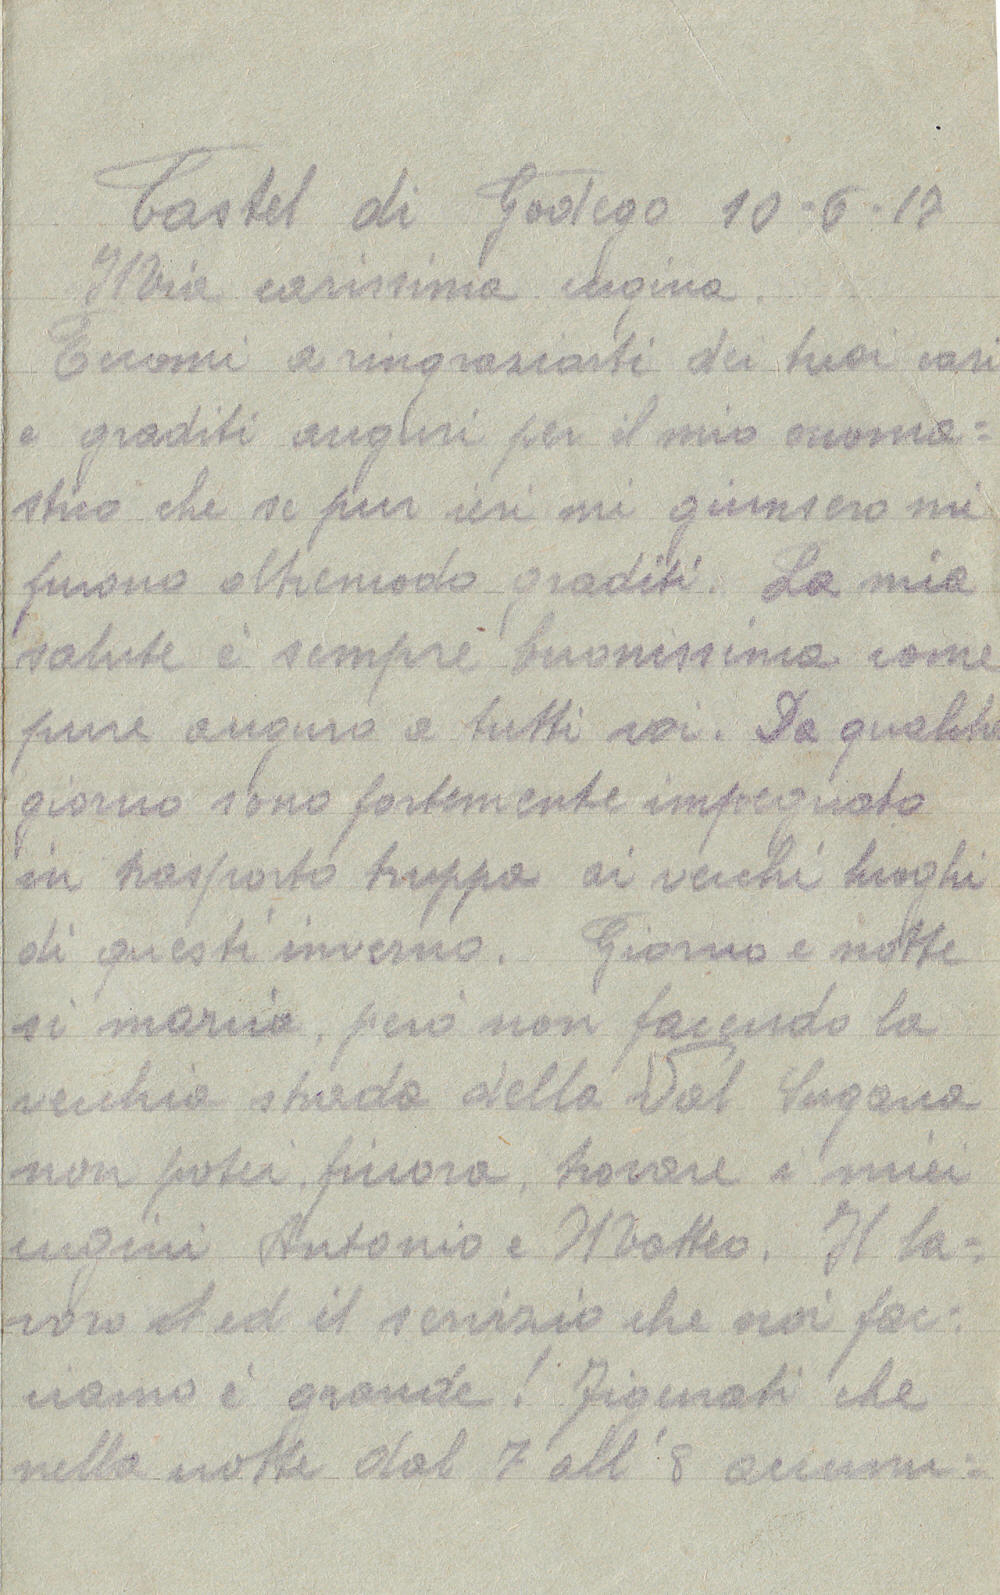 Castel di Godego 10-6-17
Mia carissima cugina.
Eccomi a ringraziarti dei tuoi cari
e graditi auguri per il mio onoma=
stico che se pur ieri mi giunsero mi
furono oltremodo graditi. La mia
salute è sempre buonissima come
pure auguro a tutti voi. Da qualche
giorno sono fortemente impegnato
in trasporto truppa ai vecchi luoghi
di questi inverno. Giorno e notte
si marcia, però non facendo la
vecchia strada della Val Sugana
non potei, finora, trovare i miei
cugini Antonio e Matteo. Il la=
voro ed il servizio che noi fac=
ciamo è grande! Figurati che
nella notte dal 7 all'8 accumu=